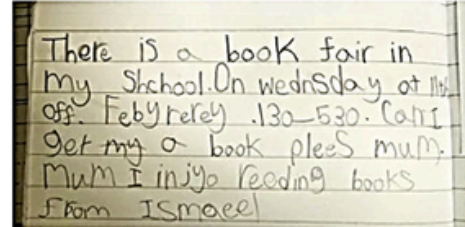 There is a book fair in
my Shchool. On wednsday at 11th
off. Febyrerey .130-530. Can I
get my a book plees mum.
Mum I injyo reeding books
from Ismaeel